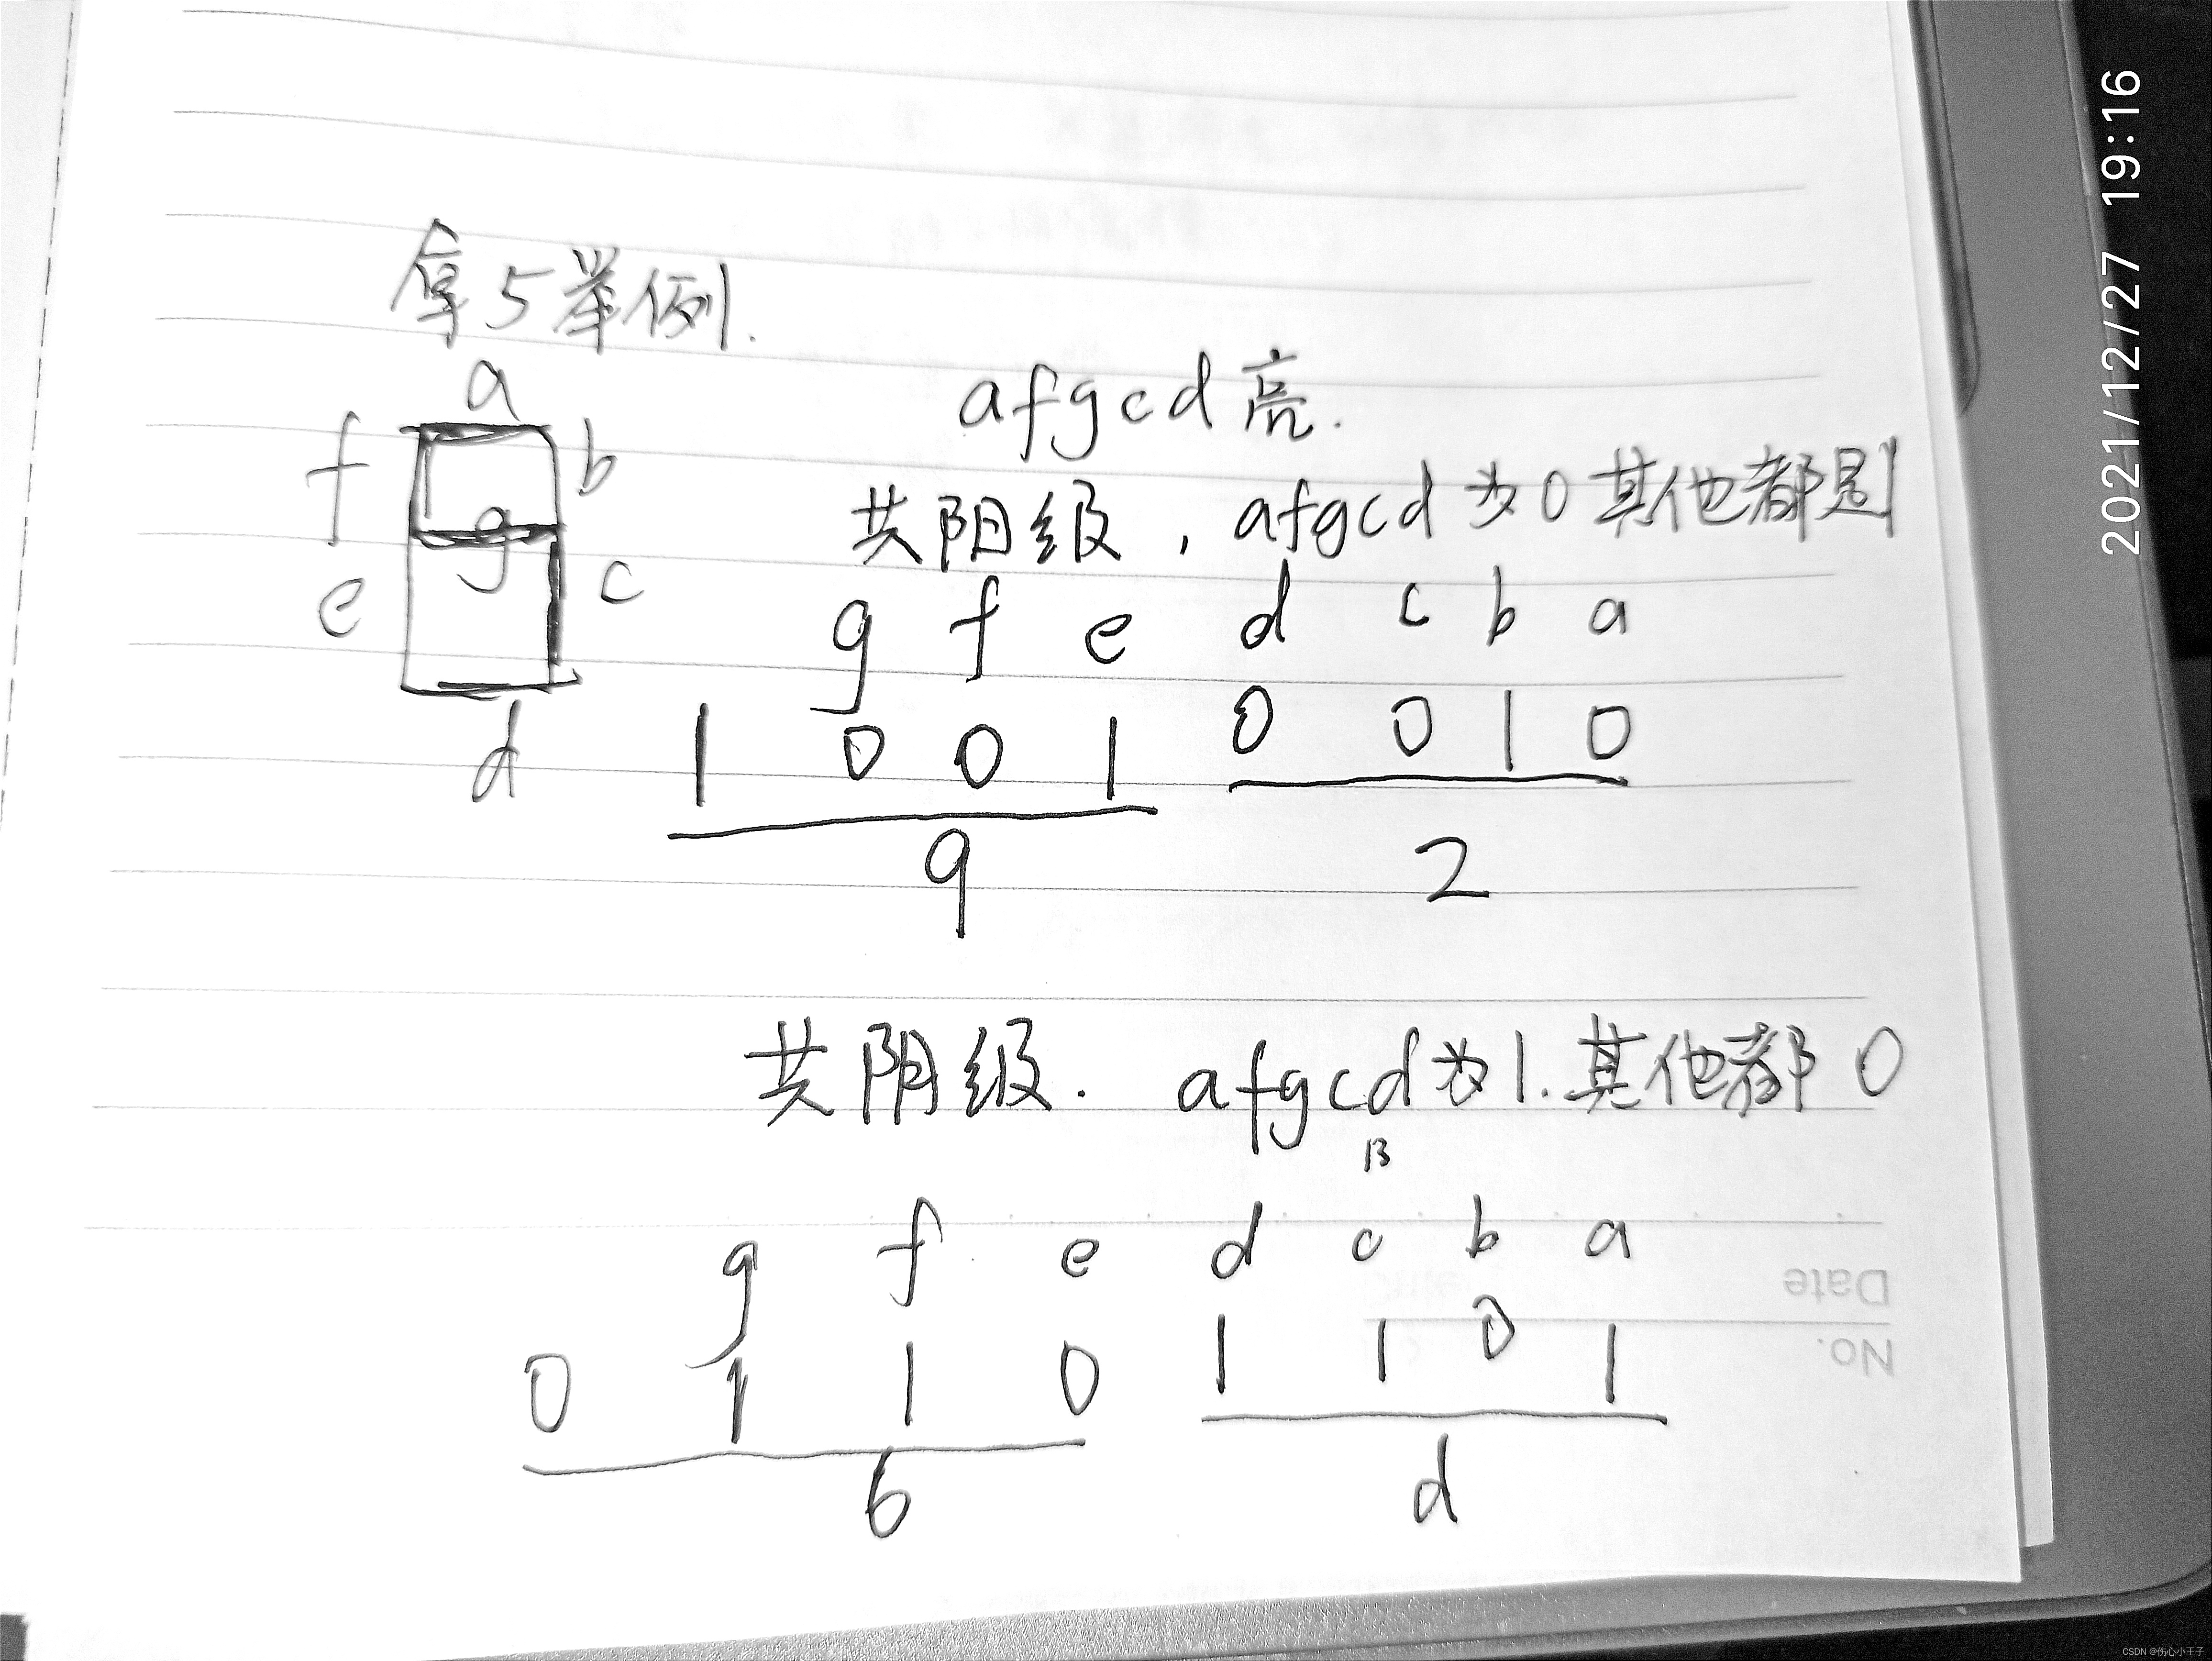 拿5举例.
a
f b
g
e c
d
afgcd亮.
共阳级,afgcd为0其他都是1
g f e d c b a
1 0 0 1 0 0 1 0
9 2
共阴级. afgcd为1.其他都0
13
g f e d c b a
0 1 1 0 1 1 0 1
6 d
Date
No.
2021/12/27 19:16
CSDN @伤心小王子